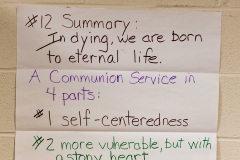 #12 Summary:
In dying, we are born
to eternal life.
A Communion Service in
4 parts:
#1 self-centeredness
#2 more vulnerable, but with
a stony heart